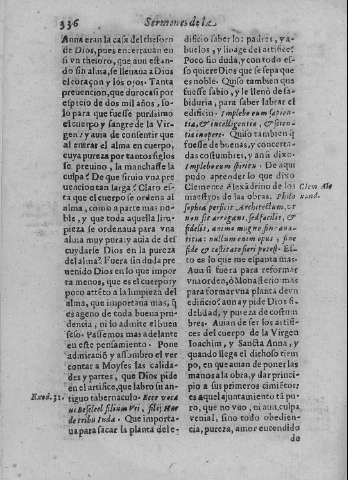 336 Sermones de la
Anna eran la casa del thesoro
de Dios, pues encerrauan en
si vn thesoro, que aun estan-
do sin alma, se lleuaua a Dios
el coraçon y los ojos. Tanta
preuencion, que duro casi por
espacio de dos mil años, so-
lo para que fuesse purissimo
el cuerpo y sangre de la Vir-
gen? y auia de consentir que
al entrar el alma en cuerpo,
cuya pureza por tantos siglos
se preuino, la manchasse la
culpa? De que siruio vna pre
uencion tan larga? Claro es-
ta que el cuerpo se ordena al
alma, como a parte mas no-
ble, y que toda aquella lim-
pieza se ordenaua para vna
alma muy pura; y auia de des
cuydarse Dios en la pureza
del alma? Fuera sin duda pre
uenido Dios en lo que impor
ta menos, que es el cuerpo; y
poco atēto a la limpieza del
alma, que importaua mas, q̄
es ageno de toda buena pru-
dencia, ni lo admite el buen
sesso. Passemos mas adelante
en este pensamiento. Pone
admiraciō y assombro el ver
contar a Moyses las calida-
des y partes, que Dios pide
en el artifice, que labro su an-
Exod. 31. tiguo tabernaculo. Ecce voca
ui Beseleel filium Vri, filij Hur
de tribu Iuda. Que importa-
ua para sacar la planta del e-
dificio saber los padres, y a-
buelos, y linage del artifice?
Poco sin duda, y con todo es-
so quiere Dios que se sepa que
es noble. Quiso tambien que
fuesse sabio, y le llenò de sa-
biduria, para saber labrar el
edificio. Impleboeum sapien-
tia, & intelligentia, & scien-
tia in opere. Quiso tambien q̄
fuesse de buenas, y concerta-
das costumbres, y ansi dixo:
Impleboeum spiritu. De aqui
pudo aprender lo que dixo
Clemente Alexādrino de los Clem. Ale
maestros de las obras. Philo xand.
sophia perficit Architectum, vt
non sit arrogans, sed facilis, &
fidelis, animo magno sine aua-
ritia: nullum enim opus, sine
fide & castitate fieri potest. Es-
to es lo que me espanta mas.
Aun si fuera para reformar
vna orden, ò Monasterio mas
para formar vna planta de vn
edificio? aun ay pide Dios fi-
delidad, y pureza de costum
bres. Auian de ser los artifi-
ces del cuerpo de la Virgen
Ioachim, y Sancta Anna, y
quando llega el dichoso tiem
po, en que auian de poner las
manos a la obra, y dar princi-
pio a sus primeros cimiētos;
es aquel ajuntamiento tā pu-
ro, que no vuo, ni aun culpa
venial, sino todo obedien-
cia, pureza, amor encendido
de